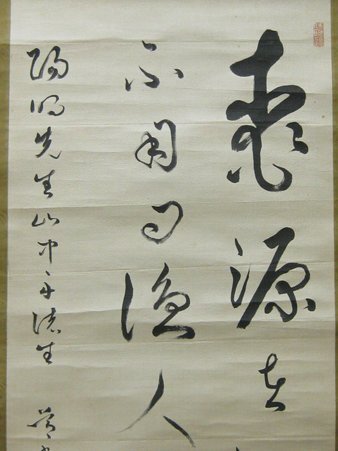 桃源在
不用問漁人
陽明先生山中示諸生